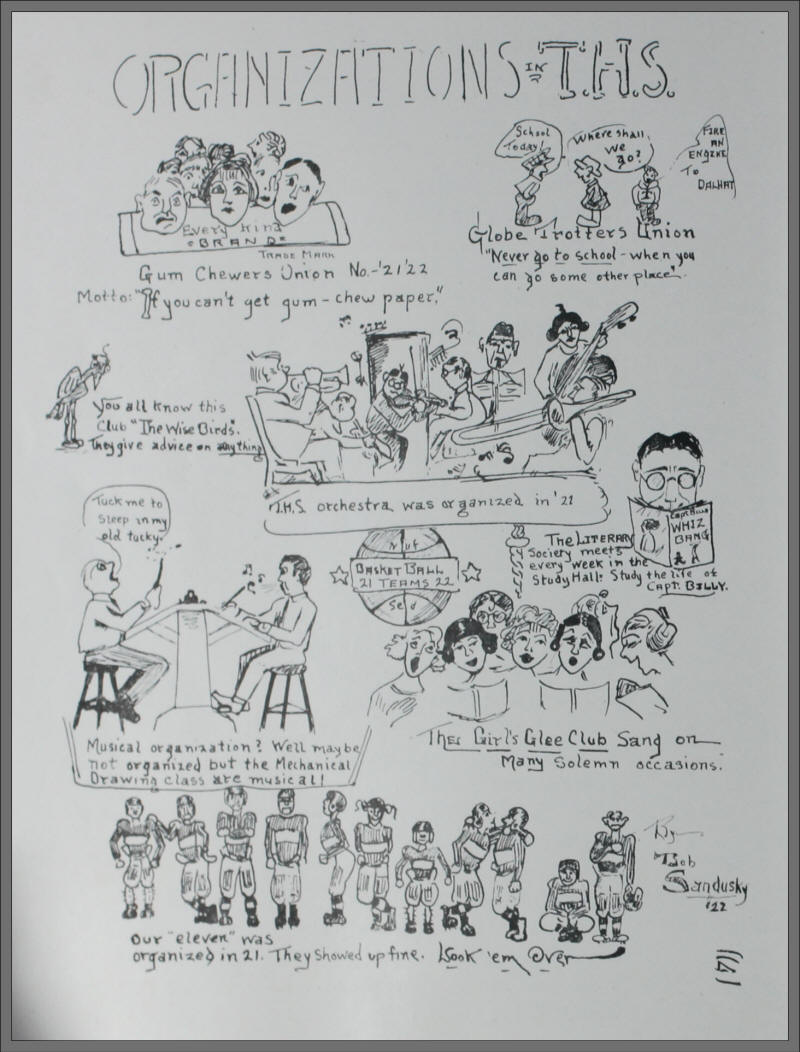 ORGANIZATIONS IN T.H.S.
Every Kind
"BRAND"
TRADE MARK
Gum Chewers Union No.-'21'22
Motto: "If you can't get gum - chew paper."
School
Today!
Where shall
we
go?
FIRE
AN
ENGINE
To
DALHAT
Globe Trotters Union
"Never go to school - when you
can go some other place".
You all know this
Club "The Wise Birds".
They give advice on anything
T.H.S. orchestra was organized in '21
Tuck me to
Sleep in my
old tucky.
Musical organization? Well maybe
not organized but the Mechanical
Drawing class are musical!
Nuf
BASKET BALL
21 TEAMS 22
Sed
Capt. Bills
WHIZ
BANG
The LITERARY
Society meets
every week in the
Study Hall. Study the life of
CAPT. BILLY.
The Girl's Glee Club Sang on
Many Solemn occasions.
Our "eleven" was
organized in 21. They showed up fine. Look 'em Over
By
Bob
Sandusky
'22